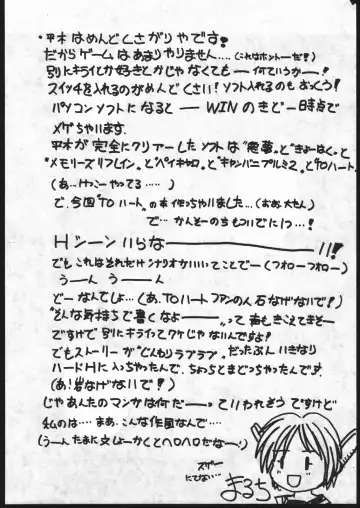 ・平木はめんどくさがりやです!
だからゲームはあまりやりません....(これはホントーだ!)
別にキライとかすきとかじゃなくても一何ていうかー!
スイッチを入れるのがめんどくさい!ソフト入れるのもおっくう!
パソコンソフトになると — WINのきどー時点で
メゲちゃいます.
平木が完全にクリアーしたソフトは
"メモリーズリフレイン"と"パイキャロ"と
(あ...けっこーやってる.....)
で.今回"TOハート"の本作っちゃいました...
で...かんそーのちもついでに1つ...!
Hシーンいらな————!!!
でもこれはそれだけシナリオがいいってことでー(フォローフォロー)
うーん うーん
どーなんでしょ...(あ.TOハートファンの人石なげないで!)
"そんな気持ちで書くなよ——"って声もきこえてきそー
ですけで別にキライってワケじゃないんですよ!
でもストーリーが"じんわりラブラブ"だったぶんいきなり
ハードHに入っちゃったんで.ちょっととまどっちゃったんです
(あ!岩なげないで!)
じゃあんたのマンガは何だーっていわれそうですけど
私のは.... まあ.こんな作風なんで....
(うーんたまに文しょーかくとヘロヘロだなー!)
まるち